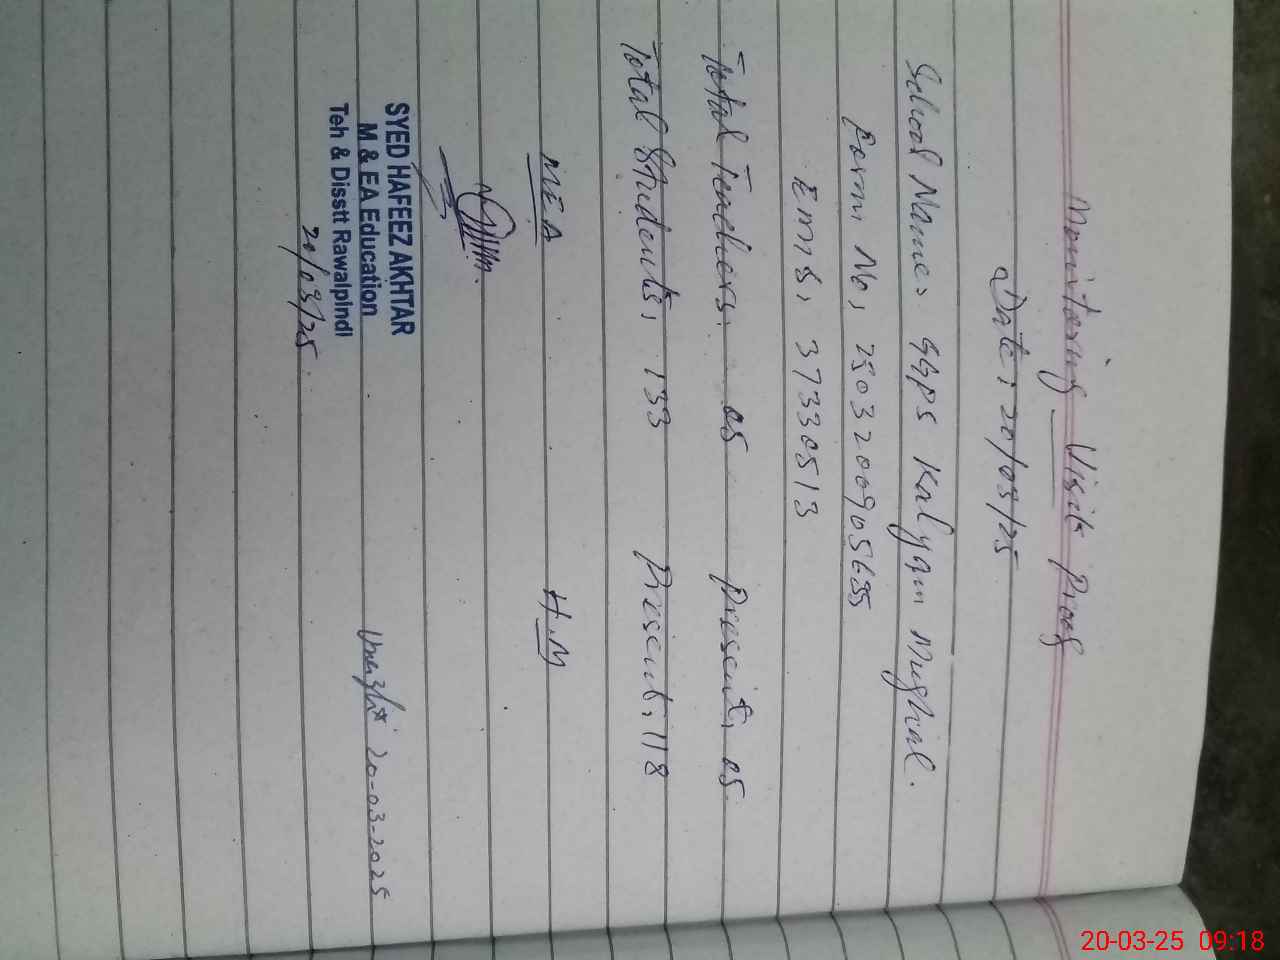 Monitoring Visit Proof
Date: 20/03/25
School Name: GGPS Kalyam Mughal.
Form No: 2503200905655
EMIS: 37330513
Total Teachers: 05 Present: 05
Total Students: 133 Present: 118
MEA H.M
SYED HAFEEZ AKHTAR
M & EA Education
Teh & Disstt Rawalpindi
20/03/25.
20-03-2025
20-03-25 09:18